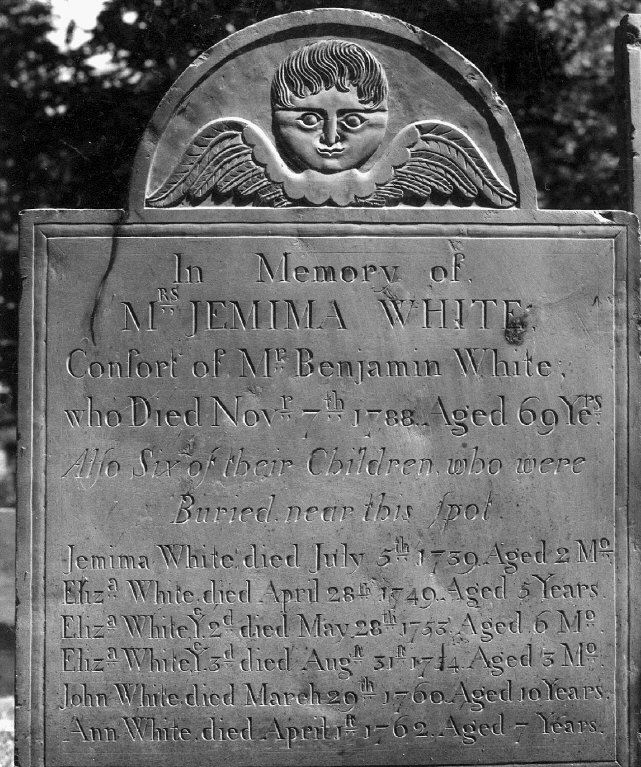 In Memory of.
Mrs JEMIMA WHITE;
Conſort of Mr Benjamin White;
who Died Novr 7th 1788. Aged 69 Yers.
Alſo Six of their Children, who were
Buried near this ſpot
Jemima White died July 5th 1739. Aged 2 Mo
Eliza White, died April 28th 1749. Aged 5 Years.
Eliza White Ye 2d died May 28th 1753. Aged 6 Mo.
Eliza White Ye 3d died Augſt 31ſt 1754. Aged 3 Mo.
John White, died March 29th 1760. Aged 10 Years.
Ann White, died April 1ſt 1762. Aged 7 Years.